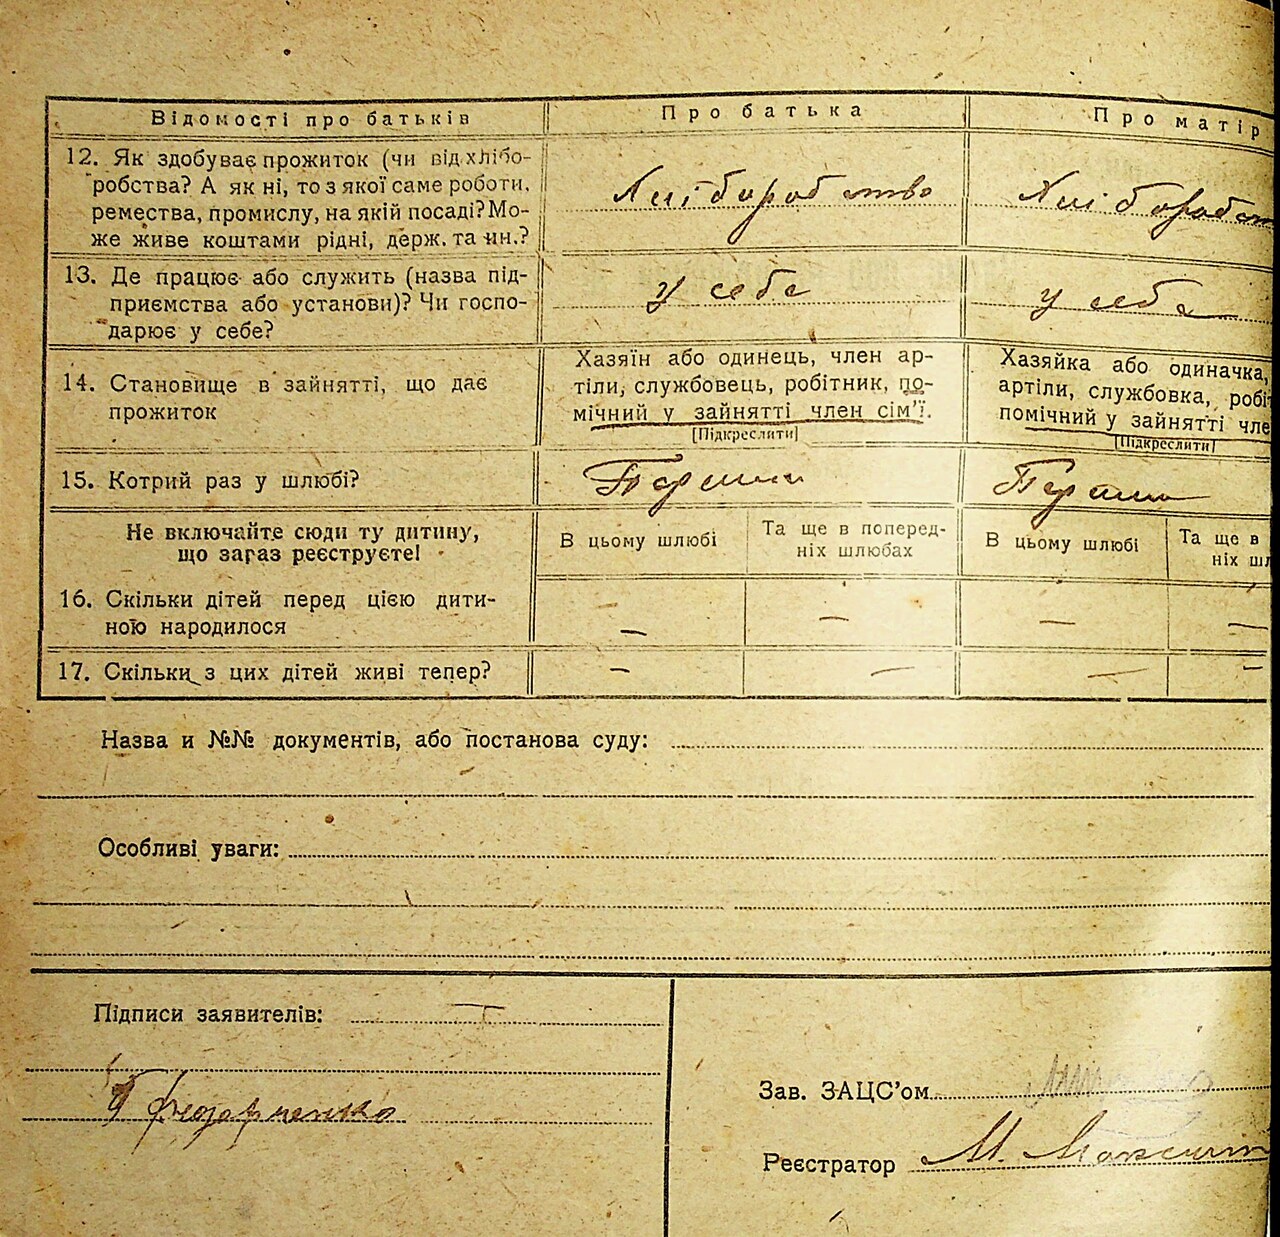 Відомості про батьків Про батька Про матір
12. Як здобуває прожиток (чи від хлібо-
робства? А як ні, то з якої саме роботи,
ремества, промислу, на якій посаді? Мо-
же живе коштами рідні, держ. та ин.?
Хліборобство Хліборобст
13. Де працює або служить (назва під-
приємства або установи)? Чи госпо-
дарює у себе?
у себе у себе
14. Становище в зайнятті, що дає
прожиток
Хазяїн або одинець, член ар-
тіли, службовець, робітник, по-
мічний у зайнятті член сім'ї.
[Підкреслити]
Хазяйка або одиначка,
артіли, службовка, робіт
помічний у зайнятті чле
[Підкреслити]
15. Котрий раз у шлюбі? Перший Перший
Не включайте сюди ту дитину,
що зараз реєструєте!
В цьому шлюбі
Та ще в поперед-
ніх шлюбах
В цьому шлюбі
Та ще в
ніх шл
16. Скільки дітей перед цією дити-
ною народилося
— — — —
17. Скільки з цих дітей живі тепер? — — — —
Назва и №№ документів, або постанова суду:
Особливі уваги:
Підписи заявителів:
Зав. ЗАЦС'ом
Реєстратор М.